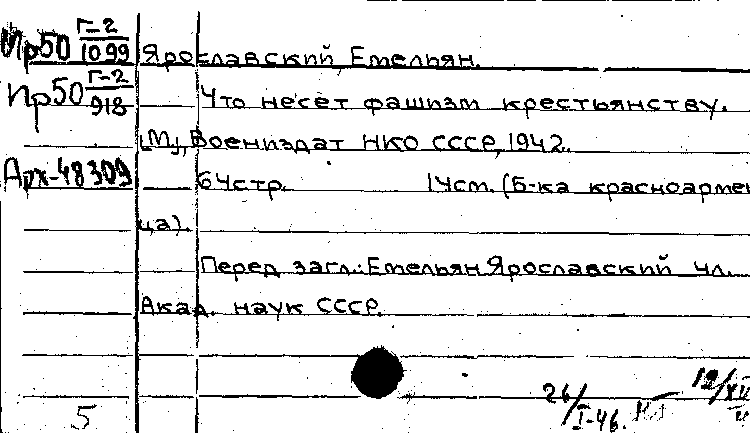 Пр50 Г-2/1099 Ярославский, Емельян.
Пр50 Г-2/918 Что несет фашизм крестьянству.
[М], Воениздат НКО СССР, 1942.
Арх-48309 64стр. 14см. (Б-ка красноармей
ца).
Перед загл.: Емельян Ярославский чл.
Акад. наук СССР.
26/I-46. 12/XII
5